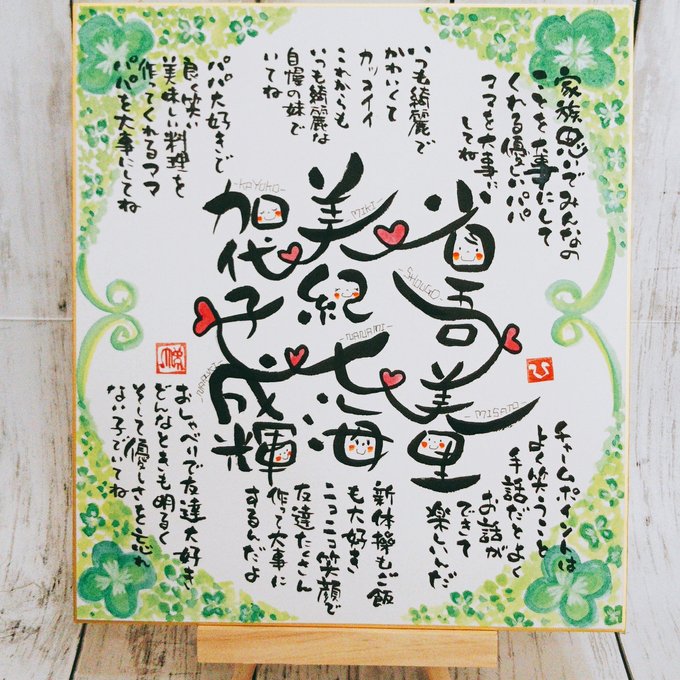 家族思いでみんなの
ことを大事にして
くれる優しいパパ
ママを大事に
してね
いつも綺麗で
かわいくて
カッコイイ
これからも
いつも綺麗な
自慢の妹で
いてね
パパ大好きで
良く笑い
美味しい料理を
作ってくれるママ
パパを大事にしてね
省吾
SHOUGO
美里
MISATO
美紀
MIKI
七海
NANAMI
加代子
KAYOKO
成輝
チャームポイントは
よく笑うこと
手話だとよく
お話が
できて
楽しいんだ
新体操もご飯
も大好き
ニコニコ笑顔で
友達たくさん
作って大事に
するんだよ
おしゃべりで友達大好き
どんなときも明るく
そして優しさを忘れ
ない子でいてね